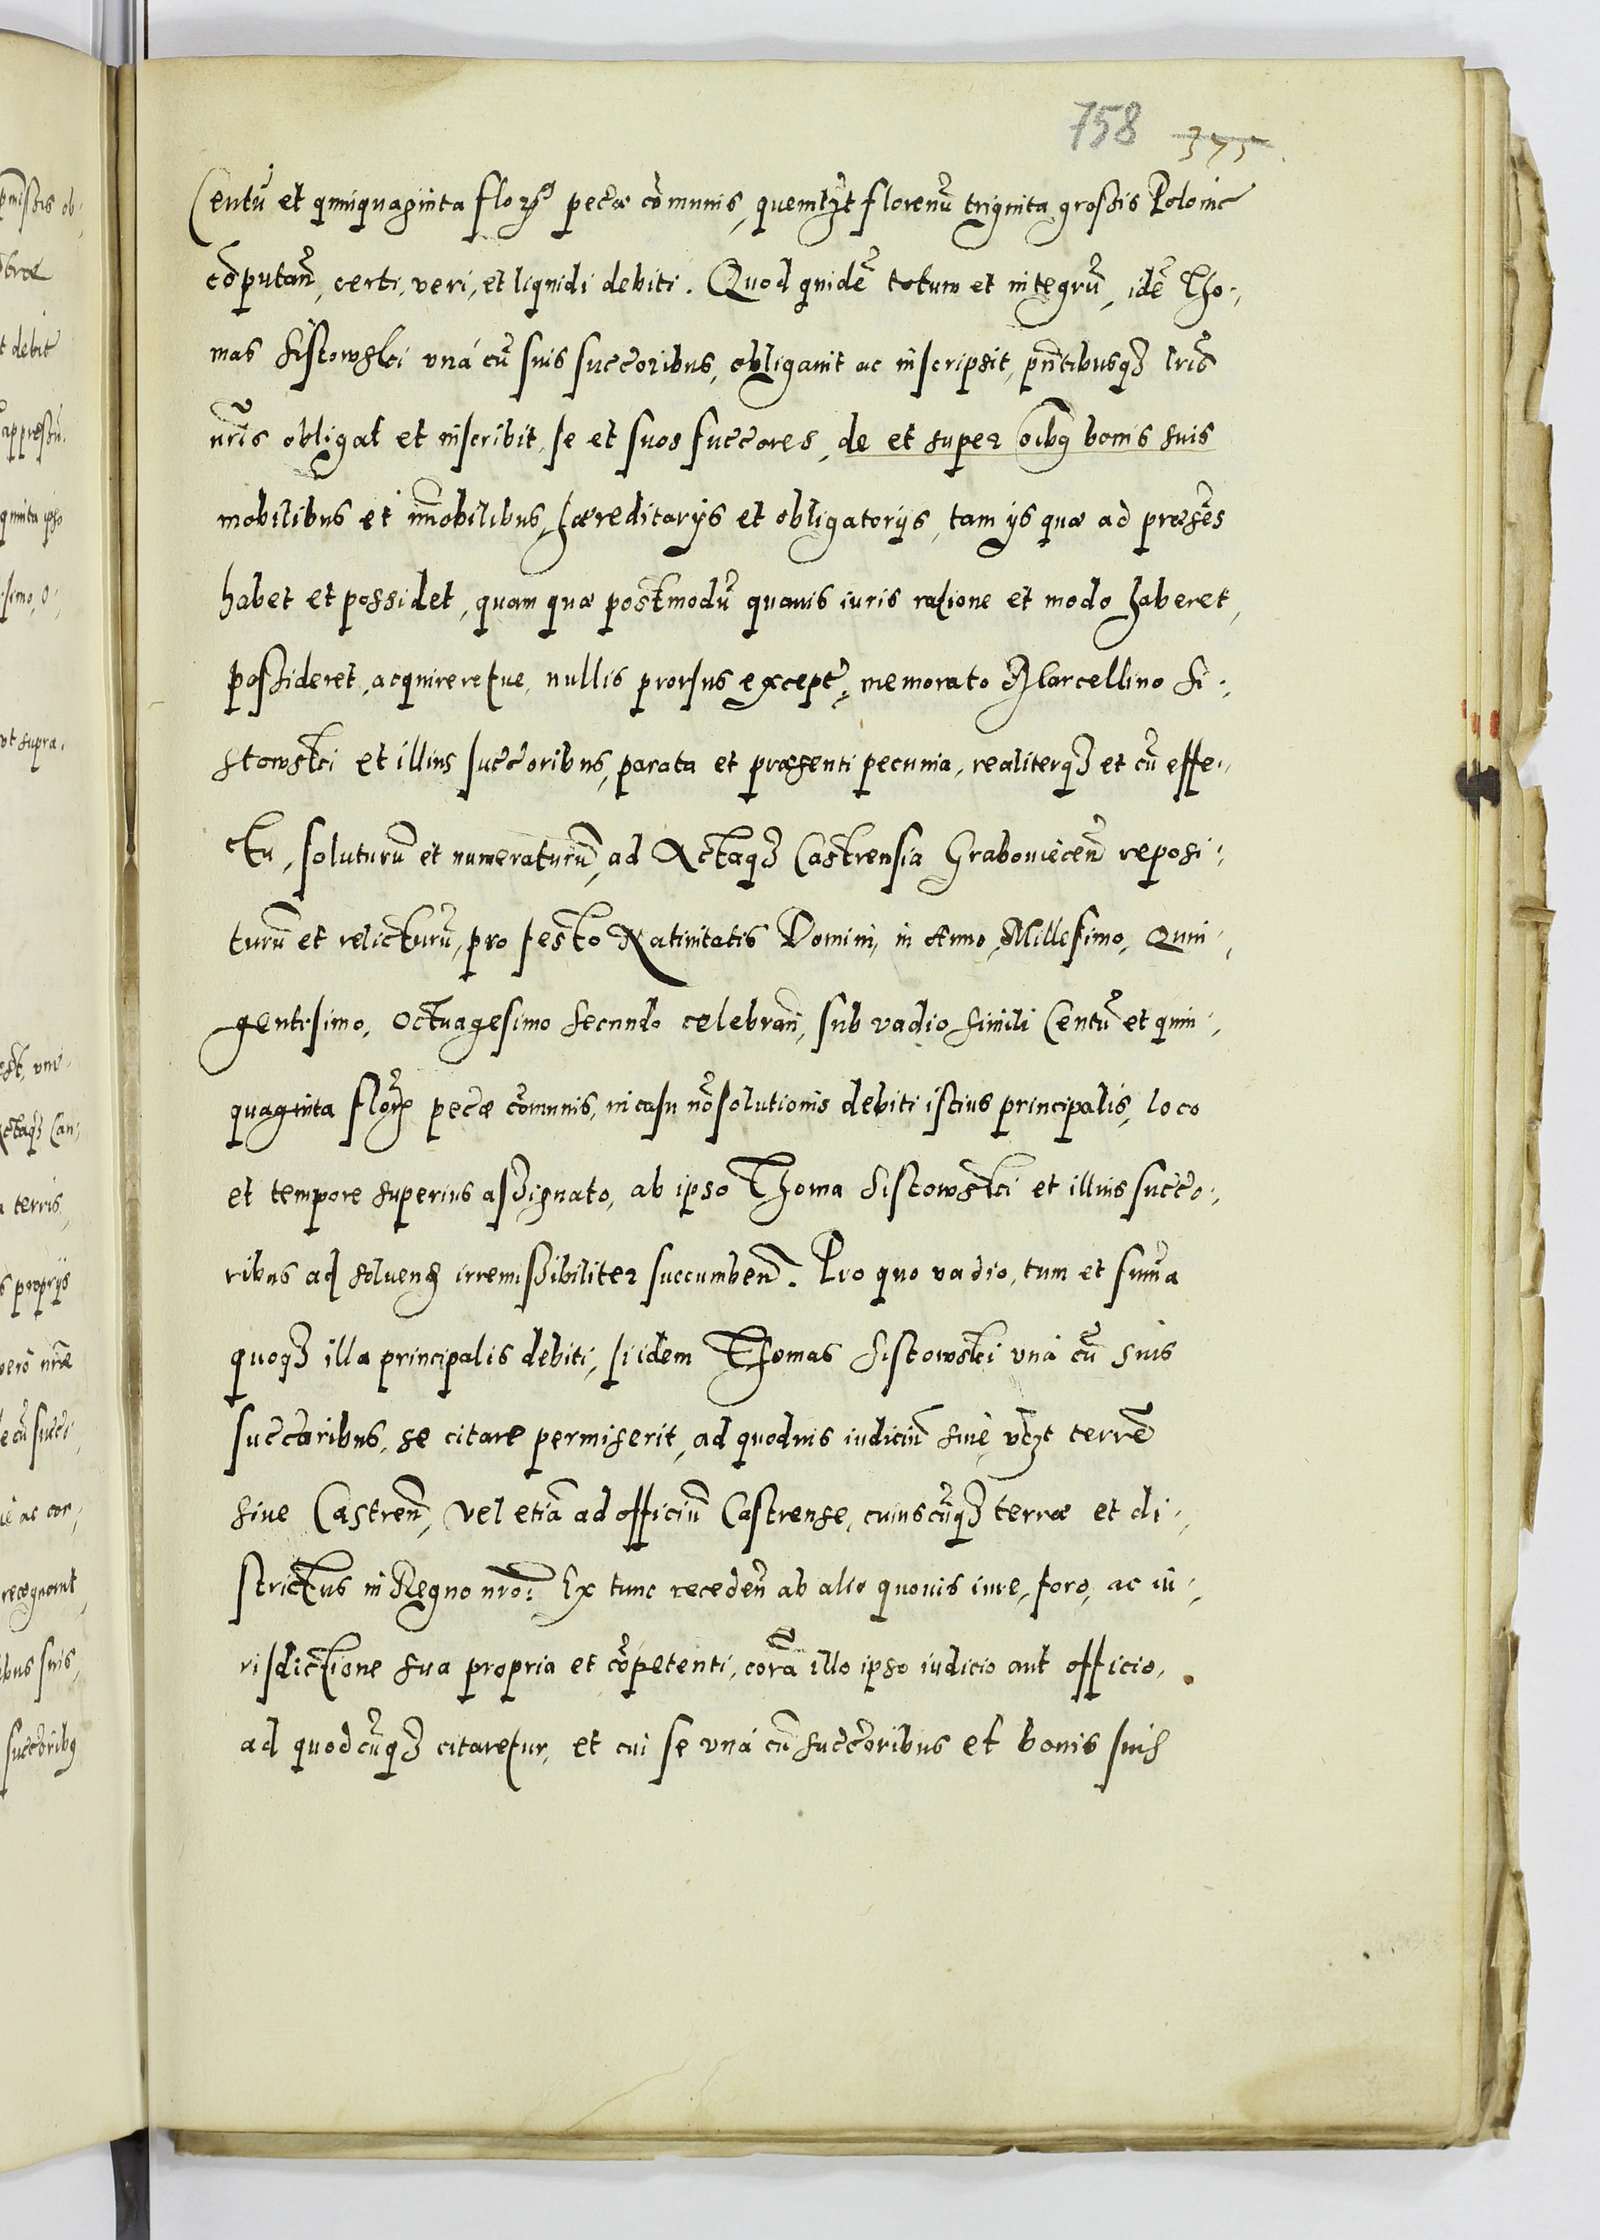 758 375
Centũ et quinquaginta florꝝ pecũæ cõmunis, quemlꝫt florenũ triginta grossis Polonic
cõputan̄, certi, veri, et liquidi debiti. Quod quidẽ totum et integrũ, idẽ Tho⸗
mas Sistowski vná cũ suis succ̃oribus, obligauit ac inscripsit, pn̄tibusqꝫ lr̃is
nr̃is obligat et inscribit, se et suos succ̃ores, de et super oĩbꝯ bonis suis
mobilibus et im̄obilibus, hæreditarijs et obligatorijs, tam ijs quæ ad præsẽs
habet et possidet, quam quæ postmodũ quauis iuris ratione et modo haberet,
possideret, acquireretue, nullis prorsus except̃, memorato Marcellino Si⸗
stowski et illius succ̃oribus, parata et præsenti pecunia, realiterqꝫ et cũ effe⸗
ctu, soluturũ et numeraturũ, ad Actaqꝫ Castrensia Grabouiecen̄ reposi⸗
turũ et relicturũ, pro festo Natiuitatis Domini, in Anno, Millesimo, Quin⸗
gentesimo, Octuagesimo secundo celebran̄, sub vadio simili Centũ et quin⸗
quaginta florꝝ pecũæ cõmunis, in casu nõ solutionis debiti istius principalis, loco
et tempore superius assignato, ab ipso Thoma Sistowski et illius succ̃o⸗
ribus ad soluend irremissibiliter succumben̄. Pro quo vadio, tum et sum̃a
quoqꝫ illa principalis debiti, si idem Thomas Sistowski vná cũ suis
succ̃oribus, se citare permiserit, ad quoduis iudiciũ siue vꝫt terrẽ
siue Castren̄, vel etiã ad officiũ Castrense, cuiuscũqꝫ terræ et di⸗
strictus in Regno nr̃o: Ex tunc receden̄ ab alio quouis iure, foro, ac iu⸗
risdictione sua propria et cõpetenti, corã illo ipso iudicio aut officio,
ad quodcũqꝫ citaretur, et cui se vná cũ succ̃oribus et bonis suis